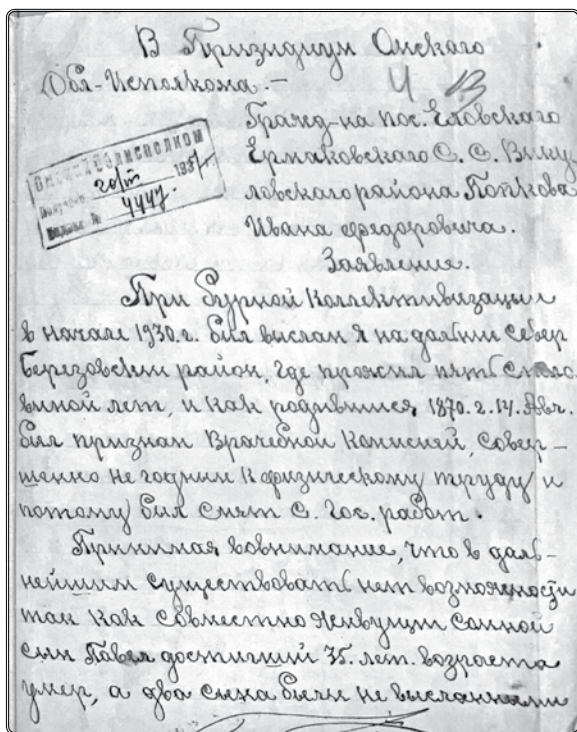 В Призидиум Омского
Обл-Исполкома.-
Ч В
Гражд-на пос. Еловского
Ермаковского С. С. Вику
ловского района Попкова
Ивана Федоровича.
ОМСКИЙ ОБЛИСПОЛКОМ
20/III 1937 г.
№ 4447.
Заявление.
При бурной Коллективизации
в начале 1930. г. был выслан я на дальнй Север
Березовскии район, где прожил пять с поло
виной лет, и как родившися, 1870. г. 14. Авг.
был признан Врачебной Комисией, Совер-
шенно не годным к физическому труду и
потому был снят с. гос. работ.
Принимая вовнимание, что в даль-
нейшим Существовать нет возможности
так как Совместно живущи Самной
сын Павел достигший 35. лет. возраста
умер, а два сына были не высланными